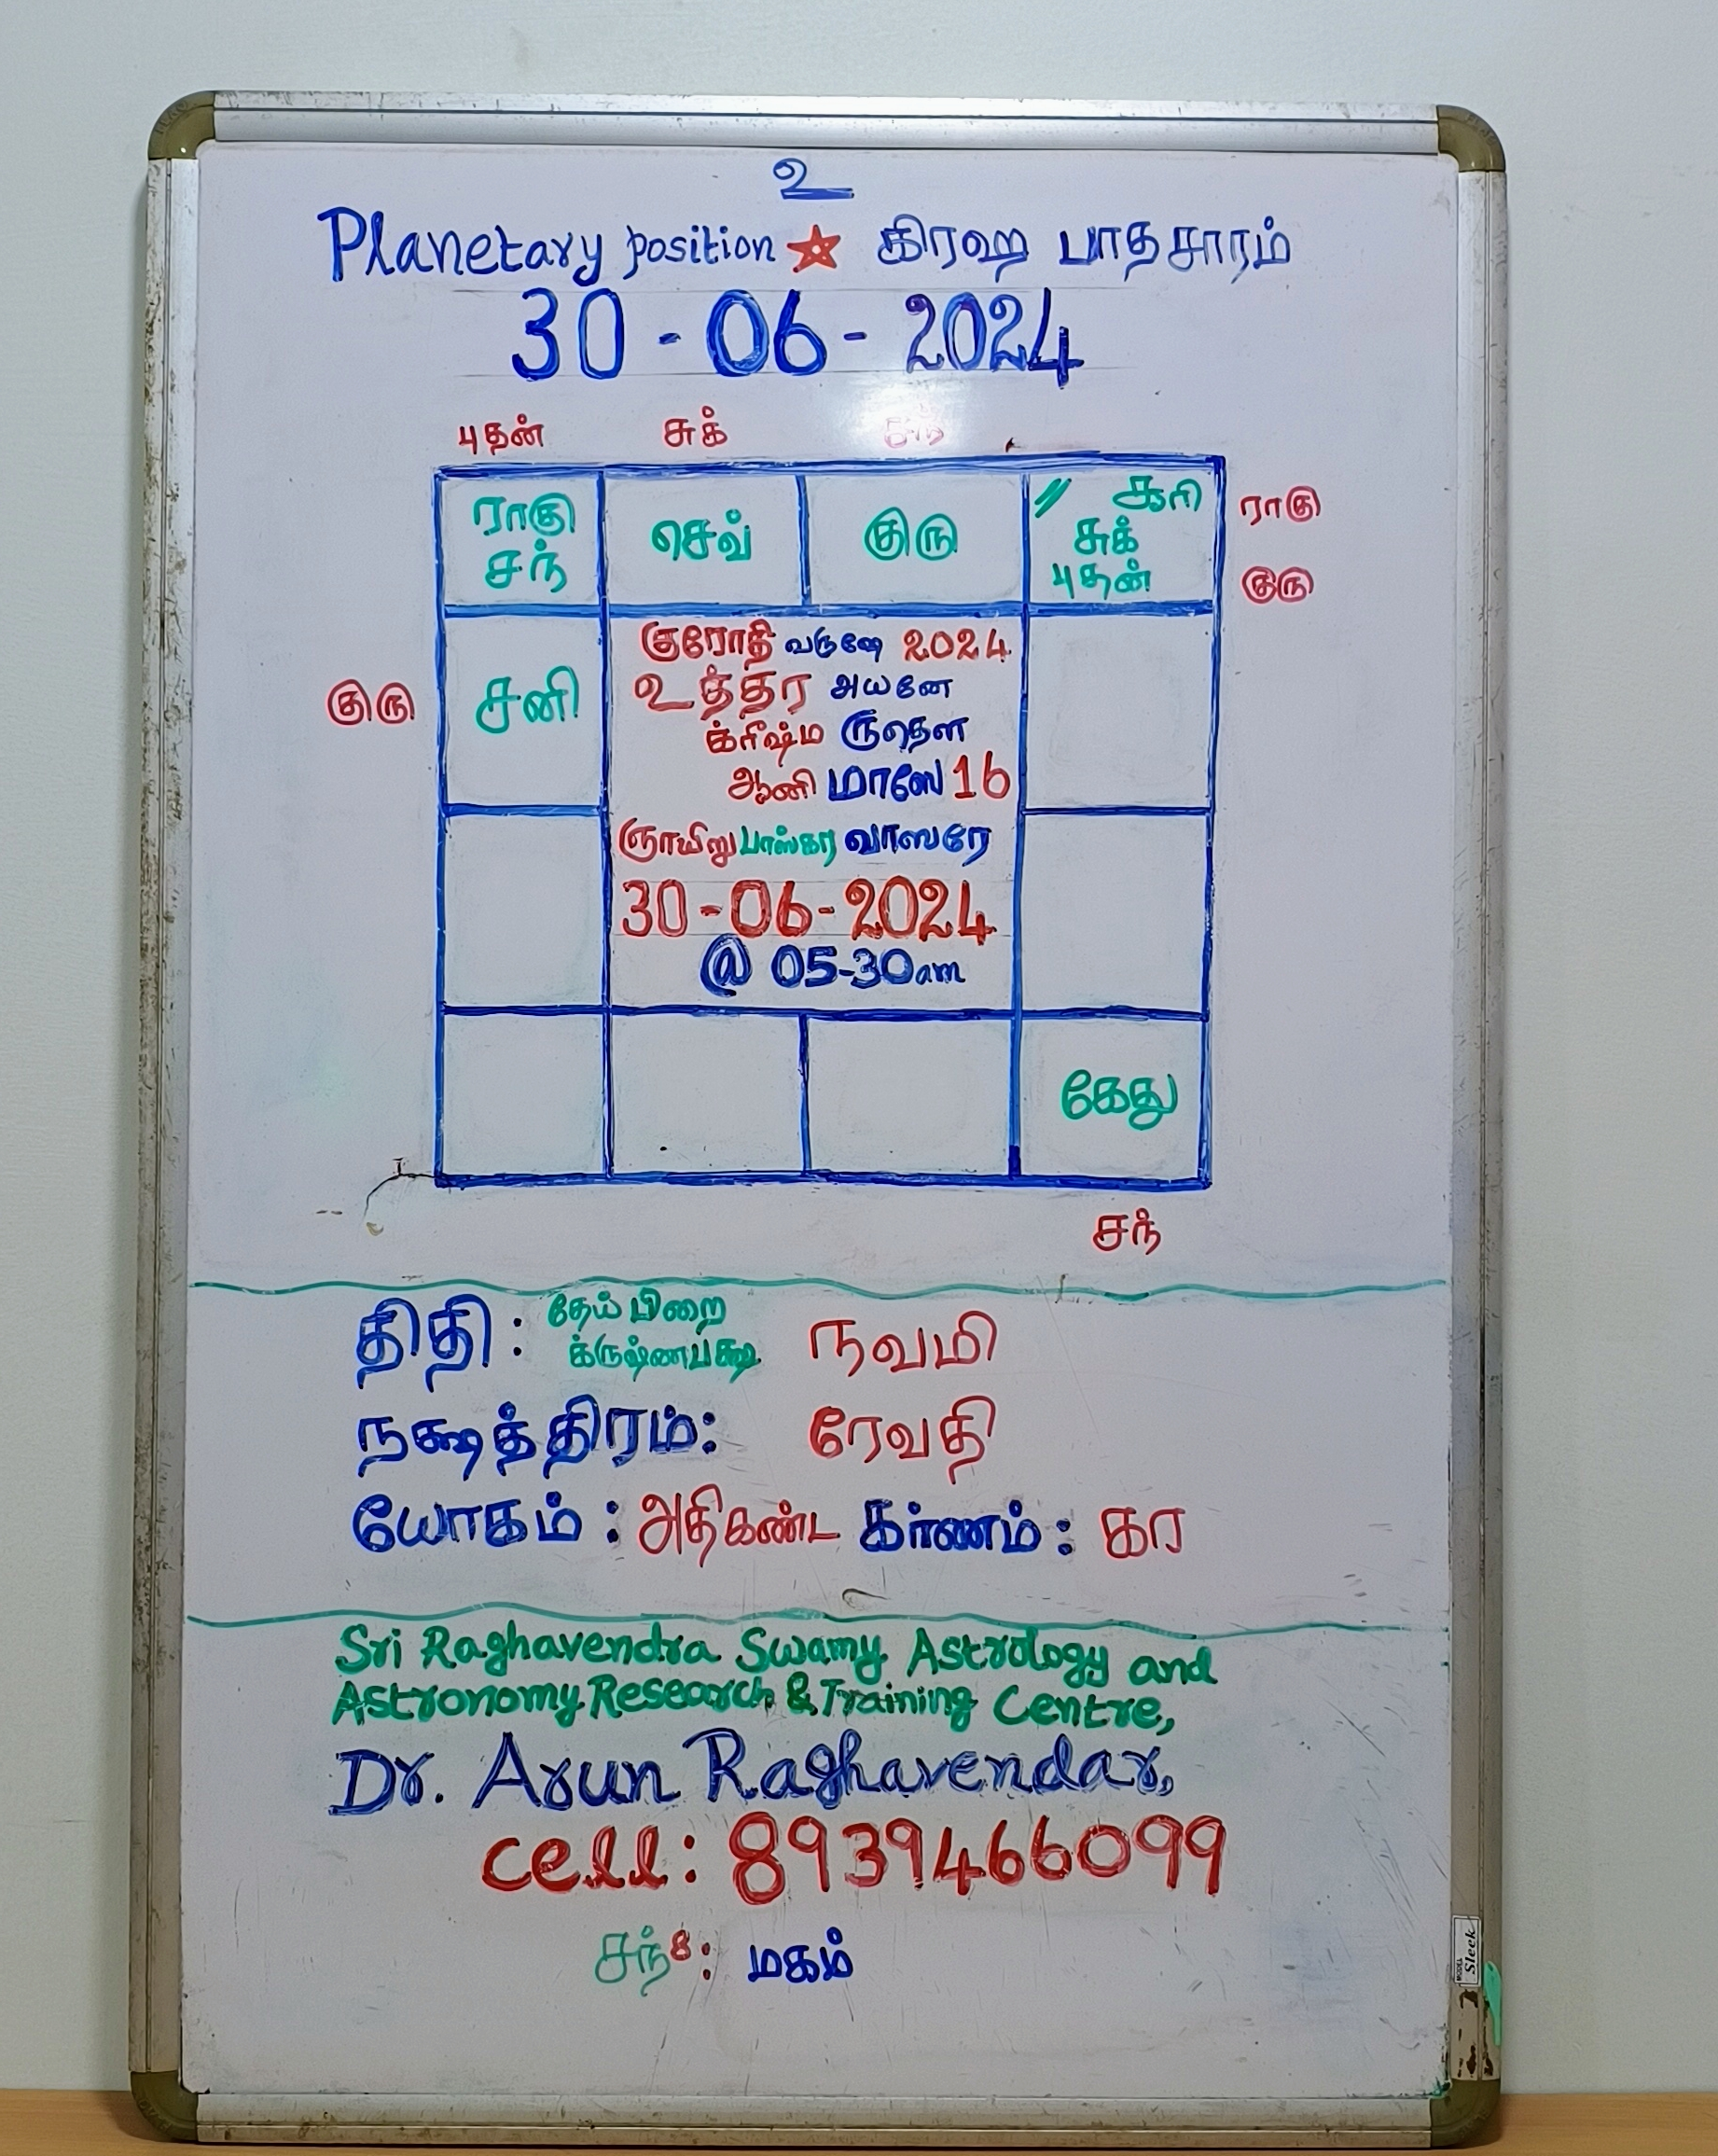 உ
Planetary position ★ கிரஹ பாதசாரம்
30 - 06 - 2024
புதன் சுக் சந்
ராகு சந் செவ் குரு // சுக் புதன் ராகு குரு
குரு சனி
குரோதி வருஷே 2024
உத்தர அயனே
க்ரீஷ்ம ருதௌ
ஆனி மாஸே 16
ஞாயிறு பாஸ்கர வாஸரே
30-06-2024
@ 05-30am
கேது
சந்
திதி : தேய்பிறை க்ருஷ்ணபக்ஷ நவமி
நக்ஷத்திரம்: ரேவதி
யோகம் : அதிகண்ட கர்ணம் : கர
Sri Raghavendra Swamy Astrology and
Astronomy Research & Training Centre,
Dr. Arun Raghavendar,
cell: 8939466099
சந்8: மகம்
Sleek